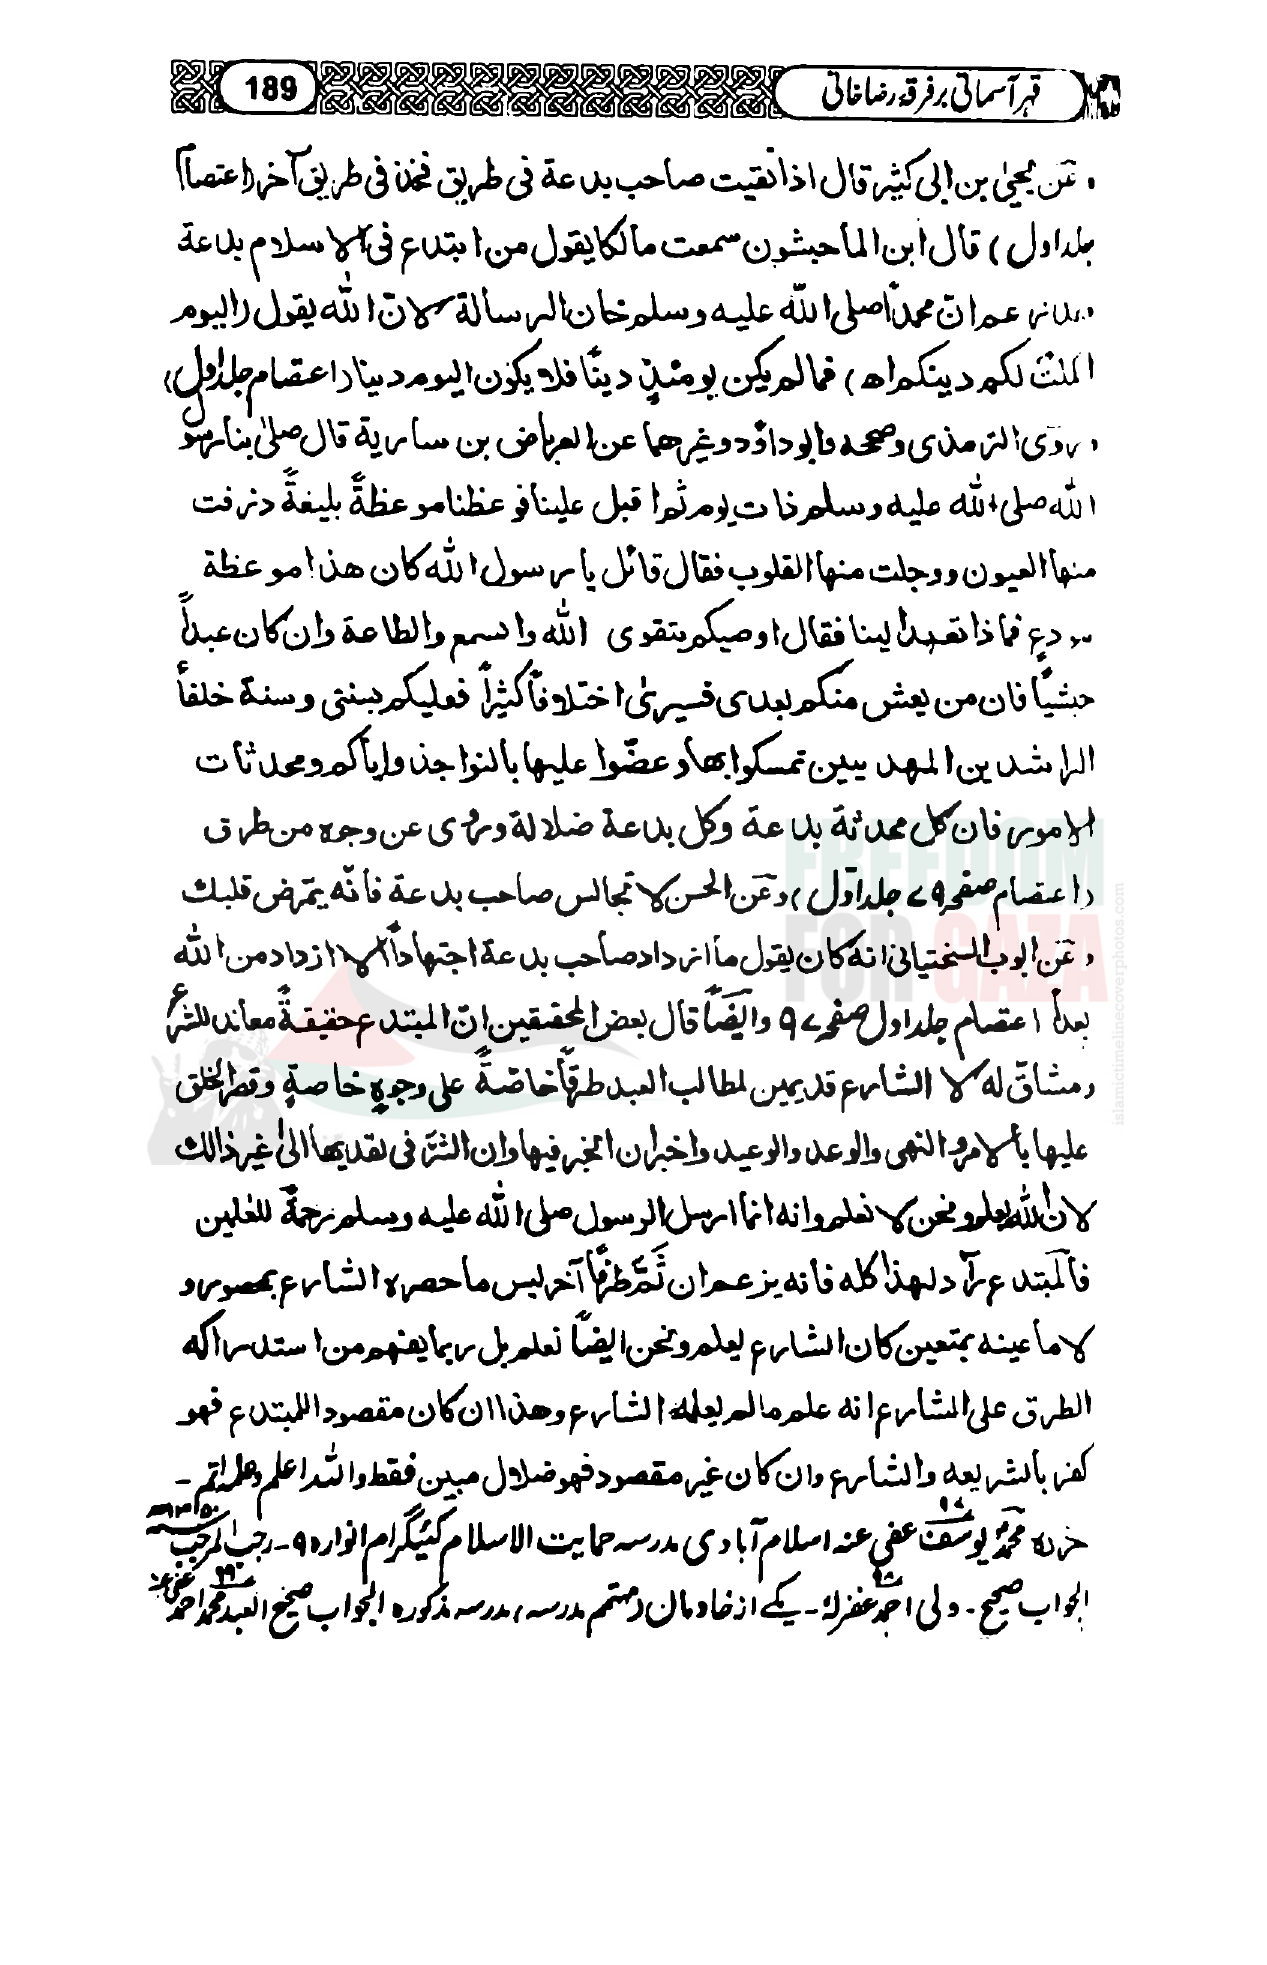 قہر آسمانی بر فرقہ رضاخانی
189
عن یحییٰ بن ابی کثیر قال اذا لقیت صاحب بدعة فی طریق فخذ فی طریق آخر (اعتصام
جلد اول) قال ابن الماجشون سمعت مالکا یقول من ابتدع فی الاسلام بدعة
عم ان محمداً صلی الله علیه وسلم خان الرسالة لان الله یقول (الیوم
اکملت لکم دینکم اھ) فمالم یکن یومئذٍ دیناً فلا یکون الیوم دینا (اعتصام جلد اول)
روی الترمذی وصححه وابوداؤد وغیرهما عن العرباض بن ساریة قال صلی بنا رسو
الله صلی الله علیه وسلم ذات یوم ثم اقبل علینا فوعظنا موعظةً بلیغةً ذرفت
منها العیون ووجلت منها القلوب فقال قائل یا رسول الله کان هذا موعظة
مودع فماذا تعهد الینا فقال اوصیکم بتقوی الله والسمع والطاعة وان کان عبداً
حبشیاً فان من یعش منکم بعدی فسیریٰ اختلافاً کثیراً فعلیکم بسنتی وسنة خلفاً
الراشدین المهدیین تمسکوا بها وعضّوا علیها بالنواجذ وایاکم ومحدثات
الامور فان کل محدثة بدعة وکل بدعة ضلالة وروی عن وجوه من طرق
(اعتصام صفحه ٧٩ جلد اول) وعن الحسن لا تجالس صاحب بدعة فانّه یمرض قلبك
وعن ایوب السختیانی انه کان یقول ما ازداد صاحب بدعة اجتهاداً الا ازداد من الله
بعداً اعتصام جلد اول صفحه ٩٧ وایضاً قال بعض المحققین انّ المبتدع حقیقةً معاند للشرع
ومشاقّ له لا الشارع قد یمین لمطالب العبد طرقاً خاصّةً علی وجوهٍ خاصةٍ وقصر الخلق
علیها بالامر والنهی والوعد والوعید واخبر ان الخیر فیها وان الشرّ فی تعدیها الیٰ غیر ذالك
لان الله یعلم ونحن لا نعلم وانه انما ارسل الرسول صلی الله علیه وسلم رحمةً للعٰلمین
فالمبتدع رآد لهذا کله فانه یزعم ان ثَمّ طرقاً آخر لیس ما حصره الشارع بمحصور و
لا ما عینه بمتعین کان الشارع یعلم ونحن ایضاً نعلم بل ربما یفهم من استدراکه
الطرق علی الشارع انه علم مالم یعلمه الشارع وهذا ان کان مقصود اللمبتدع فهو
کفر بالشریعه والشارع وان کان غیر مقصود فهو ضلال مبین فقط والله اعلم وعلمه اتم ۔
حررہ محمد یوسف عفی عنه اسلام آبادی مدرسہ حمایت الاسلام انوارہ ۹ ۔ رجب المرجب
الجواب صحیح ۔ ولی احمد غفرلہ ۔ یکے از خادمان (مہتمم مدرسہ) مدرسہ مذکورہ الجواب صحیح العبد محمد احمد عفی عنہ
FREEDOM
FOR GAZA
islamictimelinecoverphotos.com